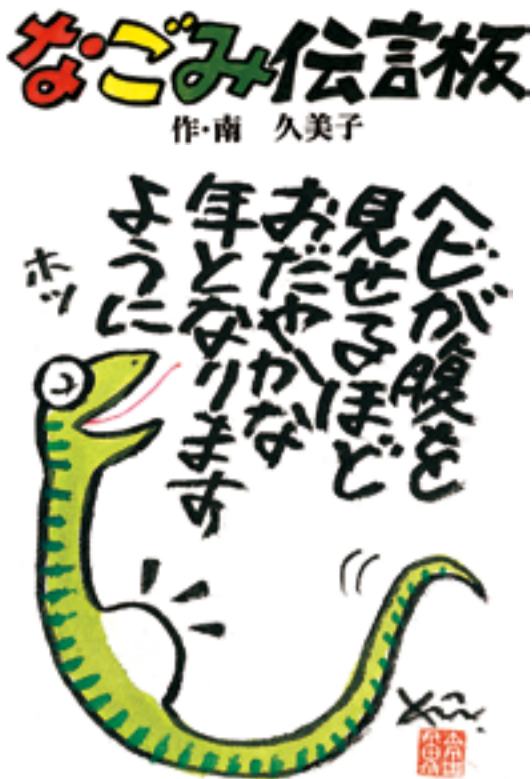 なごみ伝言板
作・南 久美子
ヘビが腹を
見せるほど
おだやかな
年となります
ように
ホッ